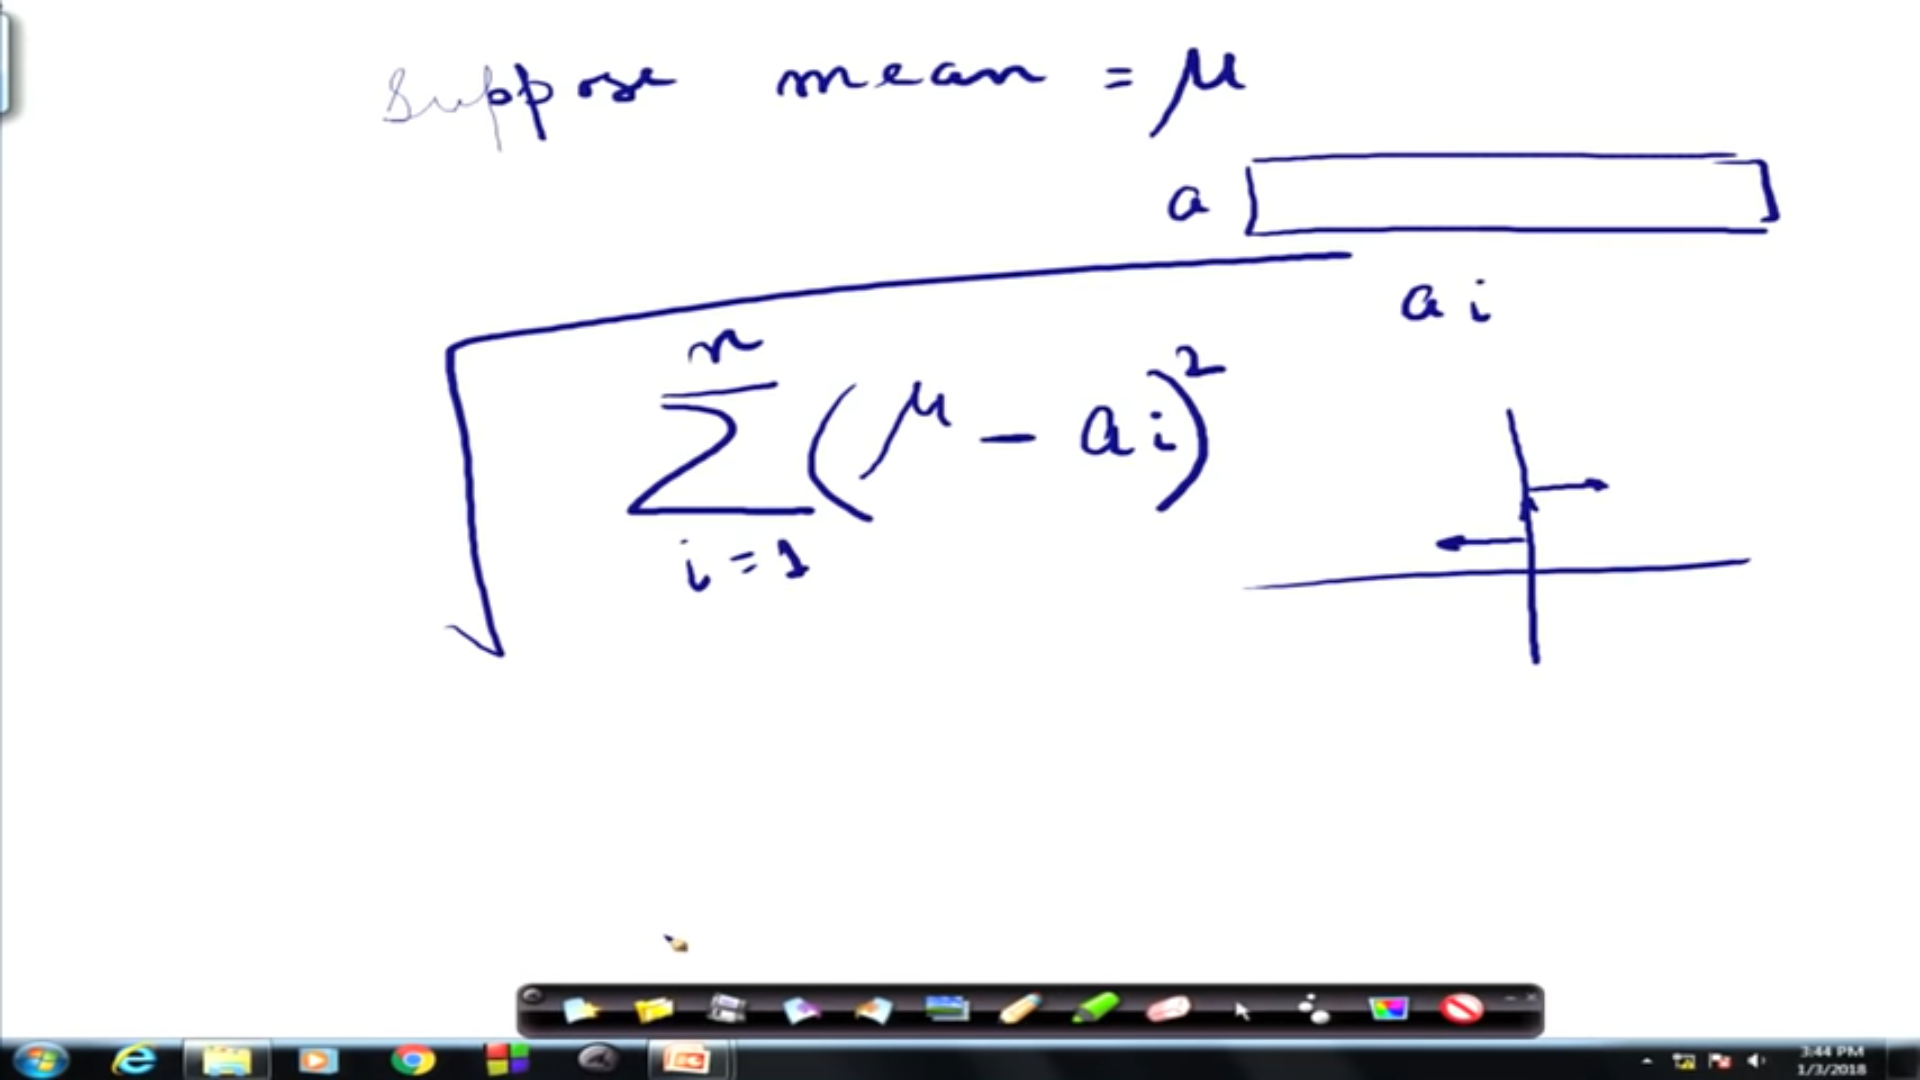 Suppose mean = μ
a
ai
n
√ ∑ (μ - ai)²
i=1
3:44 PM
1/3/2018